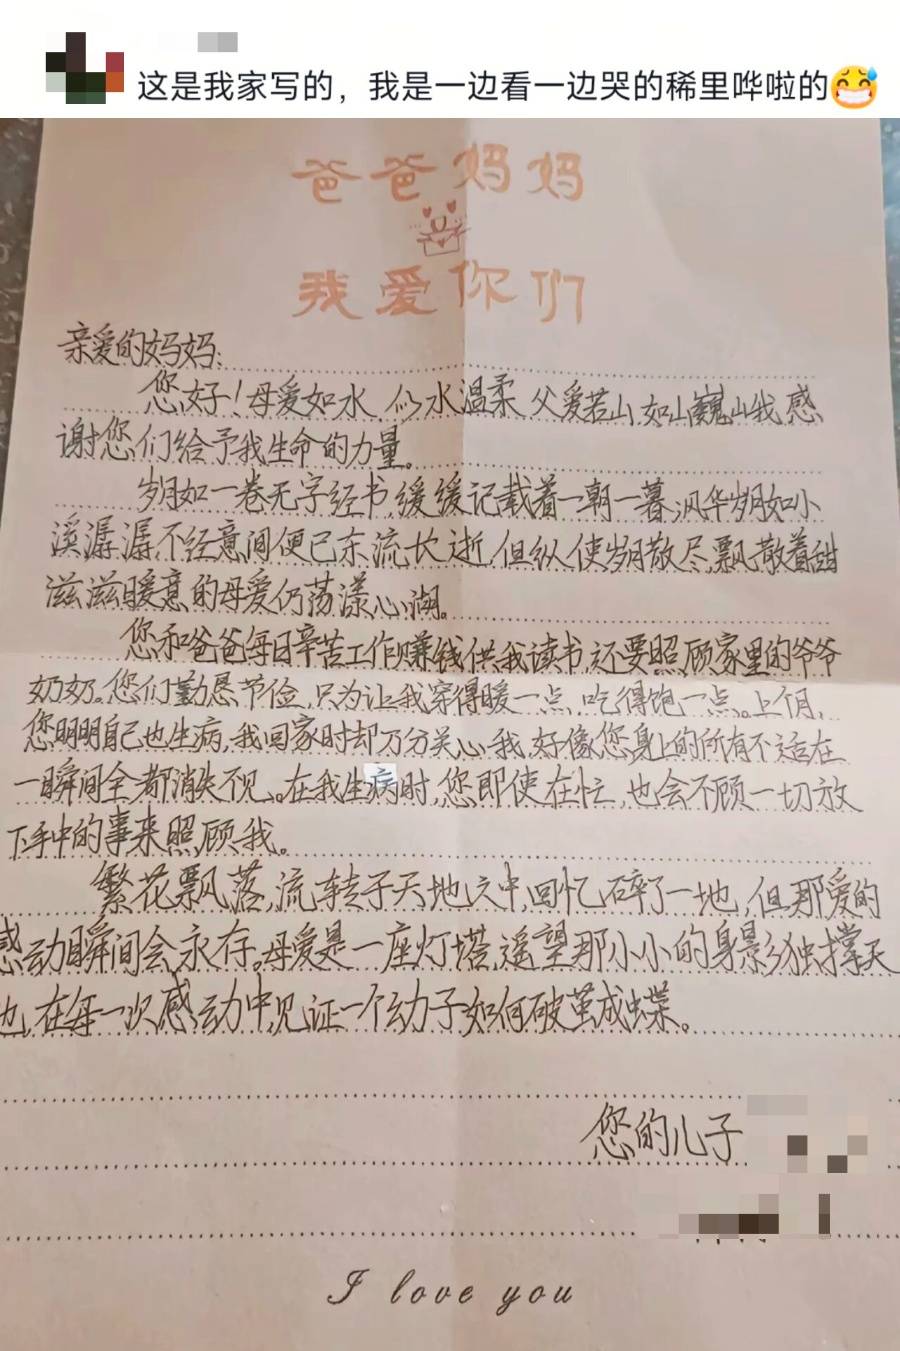 这是我家写的，我是一边看一边哭的稀里哗啦的😅
爸爸妈妈
我爱你们
亲爱的妈妈：
您好！母爱如水，似水温柔，父爱若山，如山巍山我感
谢您们给予我生命的力量。
岁月如一卷无字经书，缓缓记载着一朝一暮，风华岁月如小
溪潺潺，不经意间便已东流长逝，但纵使岁月散尽，飘散着甜
滋滋暖意的母爱仍荡漾心湖。
您和爸爸每日辛苦工作赚钱供我读书，还要照顾家里的爷爷
奶奶。您们勤恳节俭，只为让我穿得暖一点，吃得饱一点。上个月，
您明明自己也生病，我回家时却万分关心我，好像您身上的所有不适在
一瞬间全都消失不见。在我生病时，您即使在忙，也会不顾一切放
下手中的事来照顾我。
繁花飘落，流转于天地之中，回忆碎了一地，但那爱的
感动瞬间会永存。母爱是一座灯塔，遥望那小小的身影独撑天
地，在每一次感动中，见证一个幼子如何破茧成蝶。
您的儿子
I love you